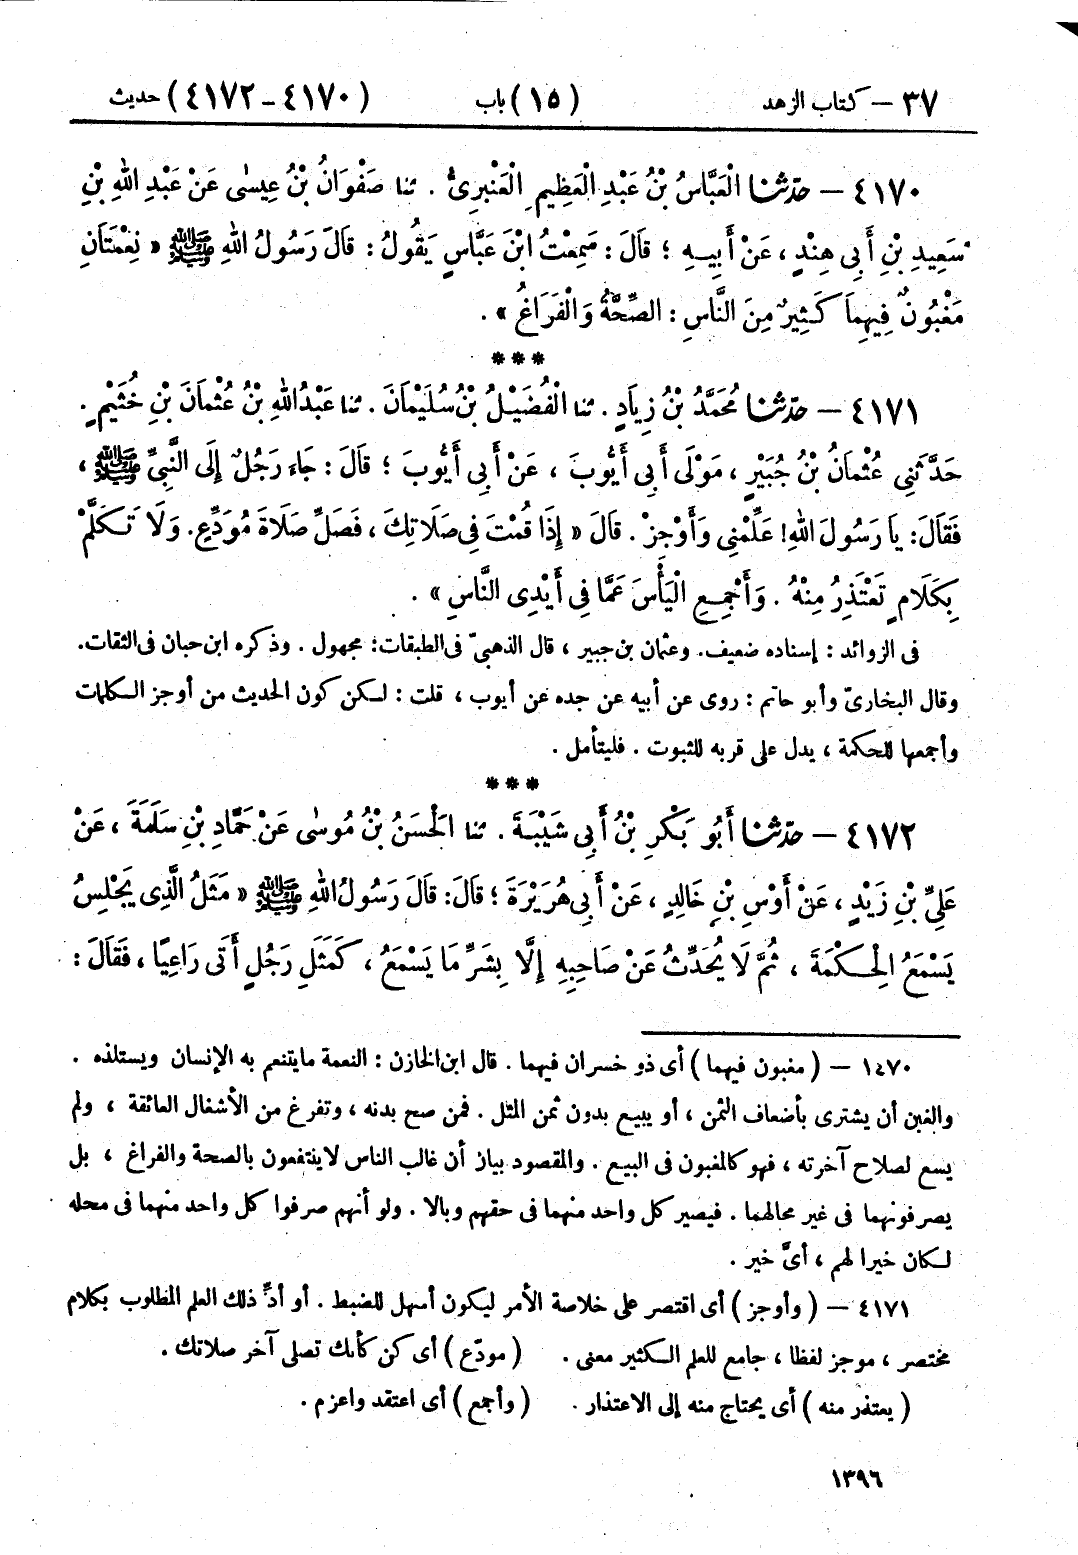 ٣٧ – كتاب الزهد (١٥) باب (٤١٧٠-٤١٧٢) حديث
٤١٧٠ – حَدَّثَنَا الْعَبَّاسُ بْنُ عَبْدِ الْعَظِيمِ الْعَنْبَرِىُّ . ثنا صَفْوَانُ بْنُ عِيسَى عَنْ عَبْدِ اللهِ بْنِ
سَعِيدِ بْنِ أَبِى هِنْدٍ ، عَنْ أَبِيهِ ؛ قَالَ : سَمِعْتُ ابْنَ عَبَّاسٍ يَقُولُ : قَالَ رَسُولُ اللهِ ﷺ « نِعْمَتَانِ
مَغْبُونٌ فِيهِمَا كَثِيرٌ مِنَ النَّاسِ : الصِّحَّةُ وَالْفَرَاغُ » .
***
٤١٧١ – حَدَّثَنَا مُحَمَّدُ بْنُ زِيَادٍ . ثنا الْفُضَيْلُ بْنُ سُلَيْمَانَ . ثنا عَبْدُ اللهِ بْنُ عُثْمَانَ بْنِ خُثَيْمٍ .
حَدَّثَنِى عُثْمَانُ بْنُ جُبَيْرٍ ، مَوْلَى أَبِى أَيُّوبَ ، عَنْ أَبِى أَيُّوبَ ؛ قَالَ : جَاءَ رَجُلٌ إِلَى النَّبِىِّ ﷺ ،
فَقَالَ : يَا رَسُولَ اللهِ ! عَلِّمْنِى وَأَوْجِزْ . قَالَ « إِذَا قُمْتَ فِى صَلَاتِكَ ، فَصَلِّ صَلَاةَ مُوَدِّعٍ . وَلَا تَكَلَّمْ
بِكَلَامٍ تَعْتَذِرُ مِنْهُ . وَأَجْمِعِ الْيَأْسَ عَمَّا فِى أَيْدِى النَّاسِ » .
فى الزوائد : إسناده ضعيف. وعثمان بن جبير ، قال الذهبىّ فى الطبقات: مجهول . وذكره ابن حبان فى الثقات.
وقال البخارىّ وأبو حاتم : روى عن أبيه عن جده عن أيوب ، قلت : لكن كون الحديث من أوجز الكلمات
وأجمعها للحكمة ، يدل على قربه للثبوت . فليتأمل .
***
٤١٧٢ – حَدَّثَنَا أَبُو بَكْرِ بْنُ أَبِى شَيْبَةَ . ثنا الْحَسَنُ بْنُ مُوسَى عَنْ حَمَّادِ بْنِ سَلَمَةَ ، عَنْ
عَلِىِّ بْنِ زَيْدٍ ، عَنْ أَوْسِ بْنِ خَالِدٍ ، عَنْ أَبِى هُرَيْرَةَ ؛ قَالَ : قَالَ رَسُولُ اللهِ ﷺ « مَثَلُ الَّذِى يَجْلِسُ
يَسْمَعُ الْحِكْمَةَ ، ثُمَّ لَا يُحَدِّثُ عَنْ صَاحِبِهِ إِلَّا بِشَرِّ مَا يَسْمَعُ ، كَمَثَلِ رَجُلٍ أَتَى رَاعِيًا ، فَقَالَ :
١٤٧٠ – ( مغبون فيهما ) أى ذو خسران فيهما . قال ابن الخازن : النعمة ما يتنعم به الإنسان ويستلذه .
والغبن أن يشترى بأضعاف الثمن ، أو يبيع بدون ثمن المثل . فمن صح بدنه ، وتفرغ من الأشغال العائقة ، ولم
يسع لصلاح آخرته ، فهو كالمغبون فى البيع . والمقصود بيان أن غالب الناس لا ينتفعون بالصحة والفراغ ، بل
يصرفونهما فى غير محالهما . فيصير كل واحد منهما فى حقهم وبالا . ولو أنهم صرفوا كل واحد منهما فى محله
لكان خيرا لهم ، أىّ خير .
٤١٧١ – ( وأوجز ) أى اقتصر على خلاصة الأمر ليكون أسهل للضبط . أو أدِّ ذلك العلم المطلوب بكلام
مختصر ، موجز لفظا ، جامع للعلم الكثير معنى . ( مودّع ) أى كن كأنك تصلى آخر صلاتك .
( يعتذر منه ) أى يحتاج منه إلى الاعتذار . ( وأجمع ) أى اعتقد واعزم .
١٣٩٦